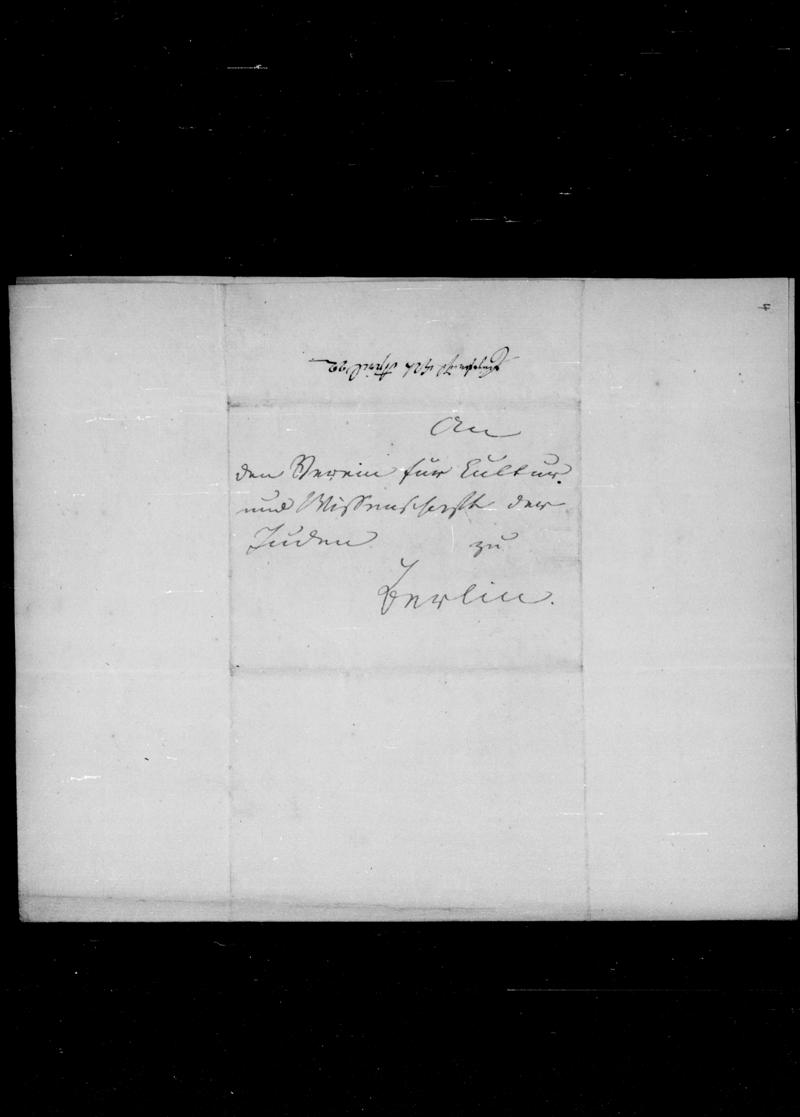 April 22
An
den Verein für Cultur
und Wissenschaft der
Juden zu
Berlin.